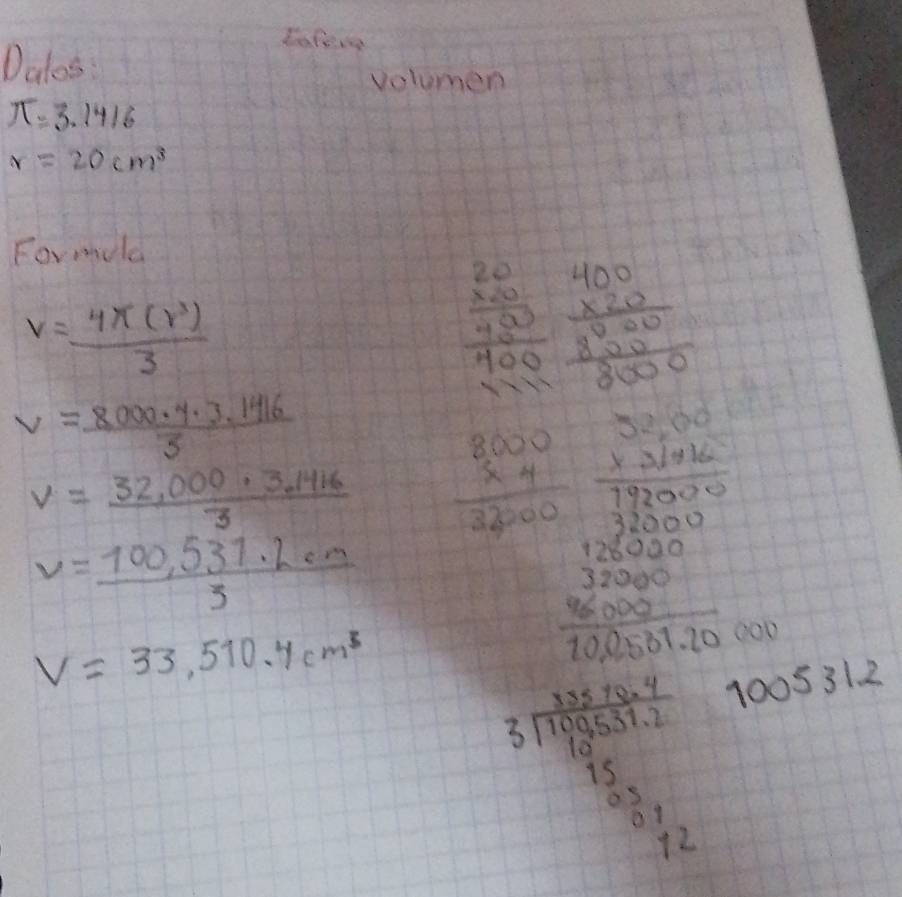 Esfera
Datos:
volumen
π=3.1416
r = 20cm³
Formula
V = 4π(r³)
3
V = 8,000·4·3.1416
3
V = 32,000 · 3.1416
3
V = 100,531.2 cm
3
V = 33,510.4 cm³
20
x20
400
400
x20
000
800
8000
8000
x 4
32,000
32,00
x 31416
192000
32000
128000
32000
96000
100,531.20 000
33510.4
3 100,531.2
10
15
03
01
12
100531.2